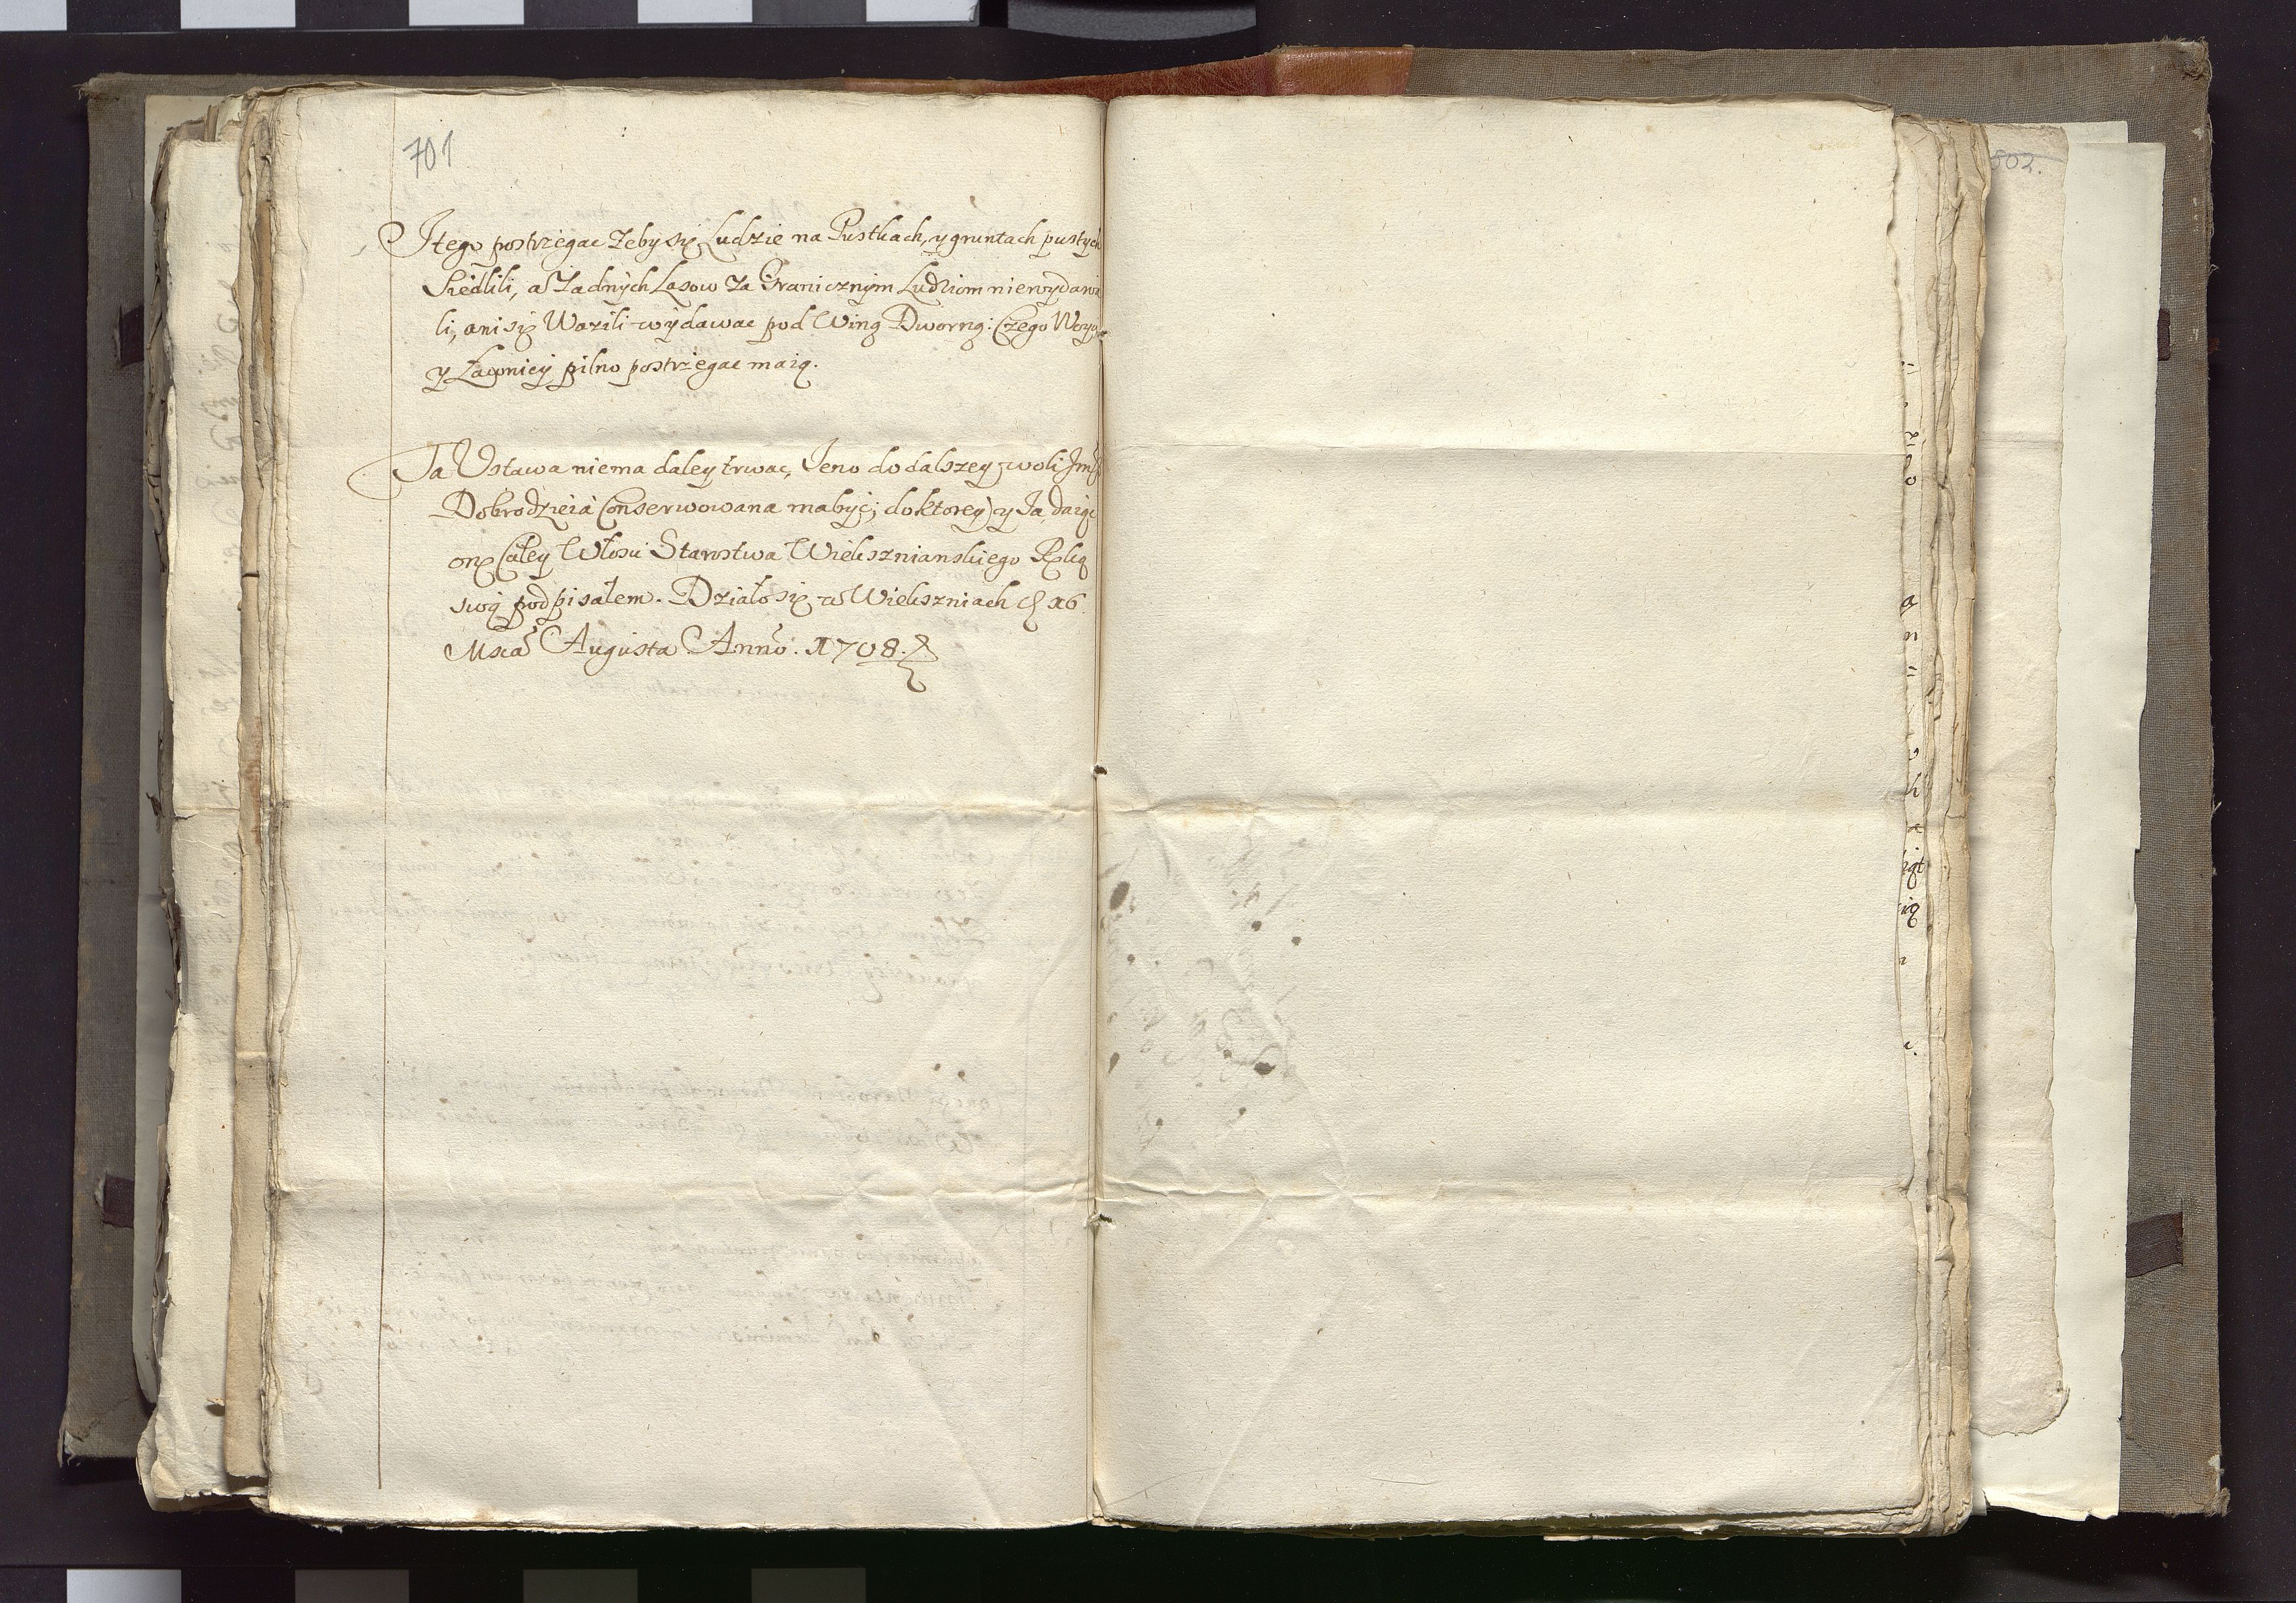 701
I tego postrzegac zeby się Ludzie na Pustkach, y gruntach pustych
Siedlili, a Zadnych Lasow Za Granicznym Ludziom niewydawa
li, ani się Wazili wydawac pod Winą Dworną: Czego Woyt
y Ławnicy pilno postrzegac maią.
Ta Ustawa niema daley trwac, Jeno do dalszey woli Jmsci
Dobrodzieia Conserwowana mabyć; do ktorey y Ja, daiąc
onę Całey Włosci Starostwa Wieksznianskiego Ręką
swoią podpisałem. Działo się w Wiekszniach d 16
Msca Augusta Anno. 1708.
502.